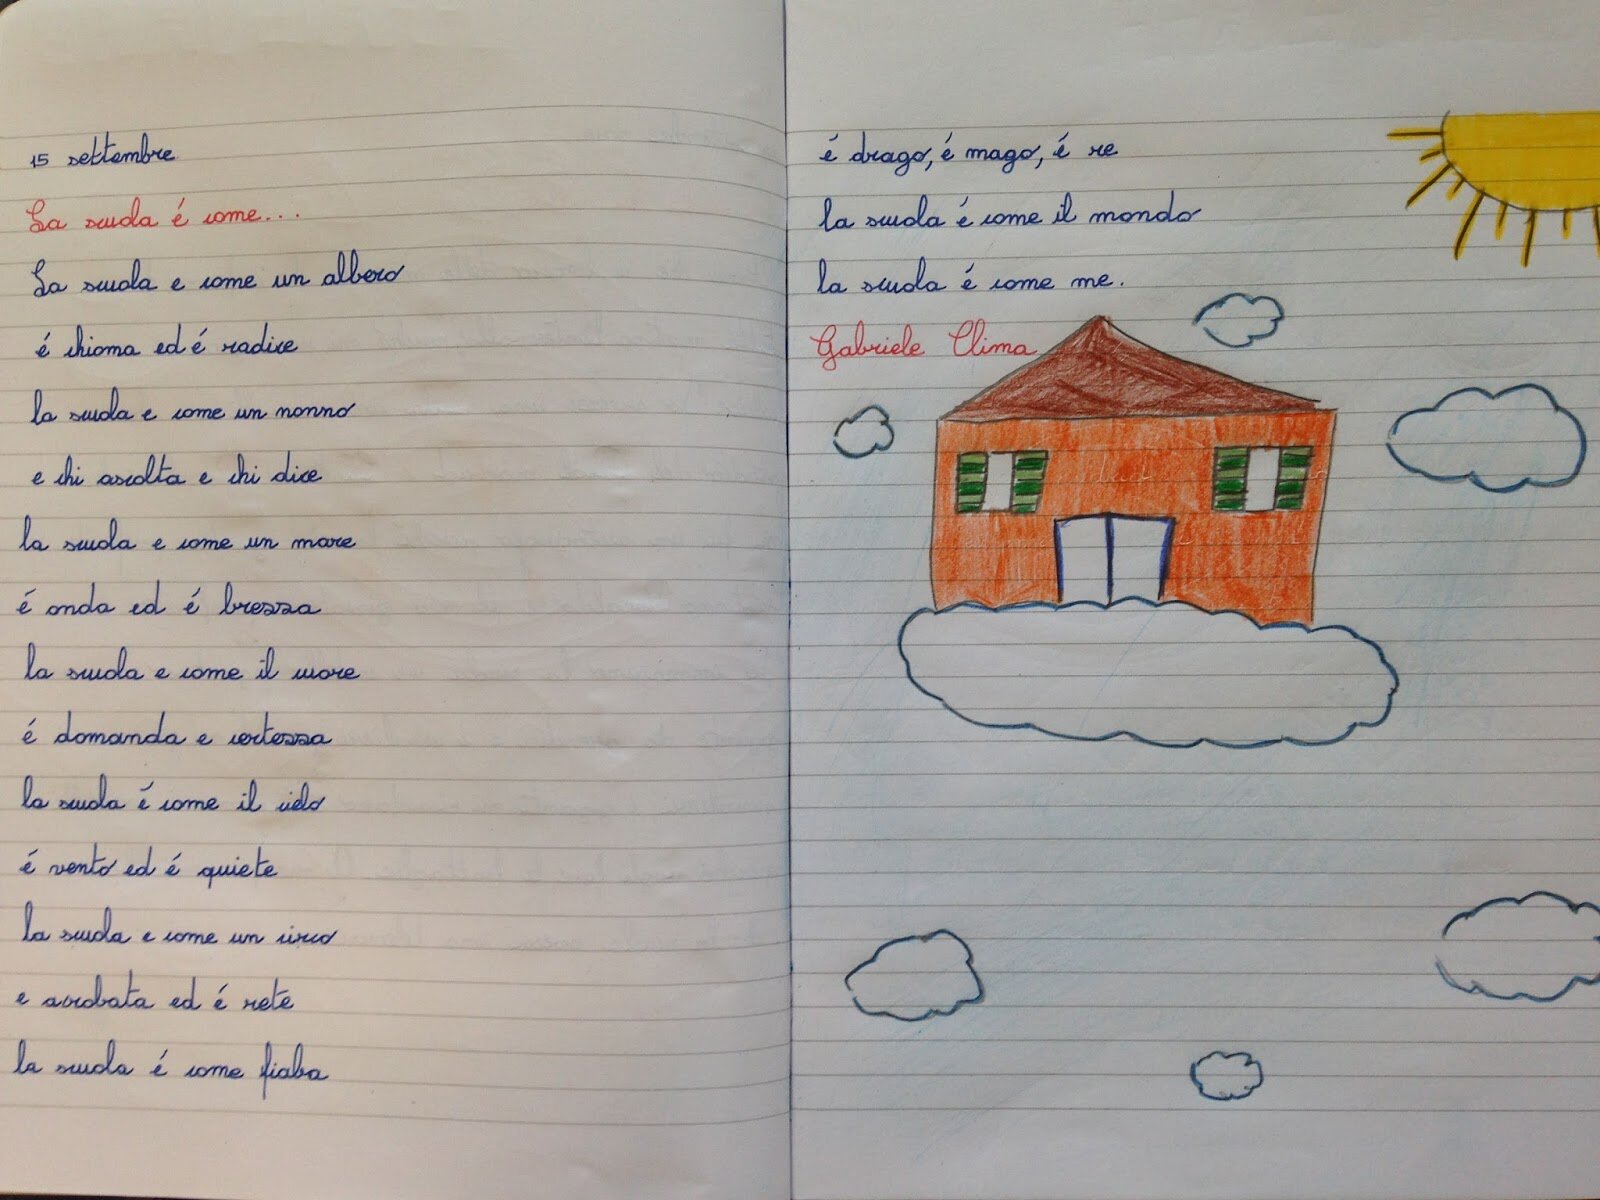 15 settembre
La scuola é come...
La scuola e come un albero
é chioma ed é radice
la scuola e come un nonno
e chi ascolta e chi dice
la scuola e come un mare
é onda ed é brezza
la scuola e come il cuore
é domanda e certezza
la scuola é come il cielo
é vento ed é quiete
la scuola e come un circo
e acrobata ed é rete
la scuola é come fiaba
é drago, é mago, é re
la scuola é come il mondo
la scuola é come me.
Gabriele Clima